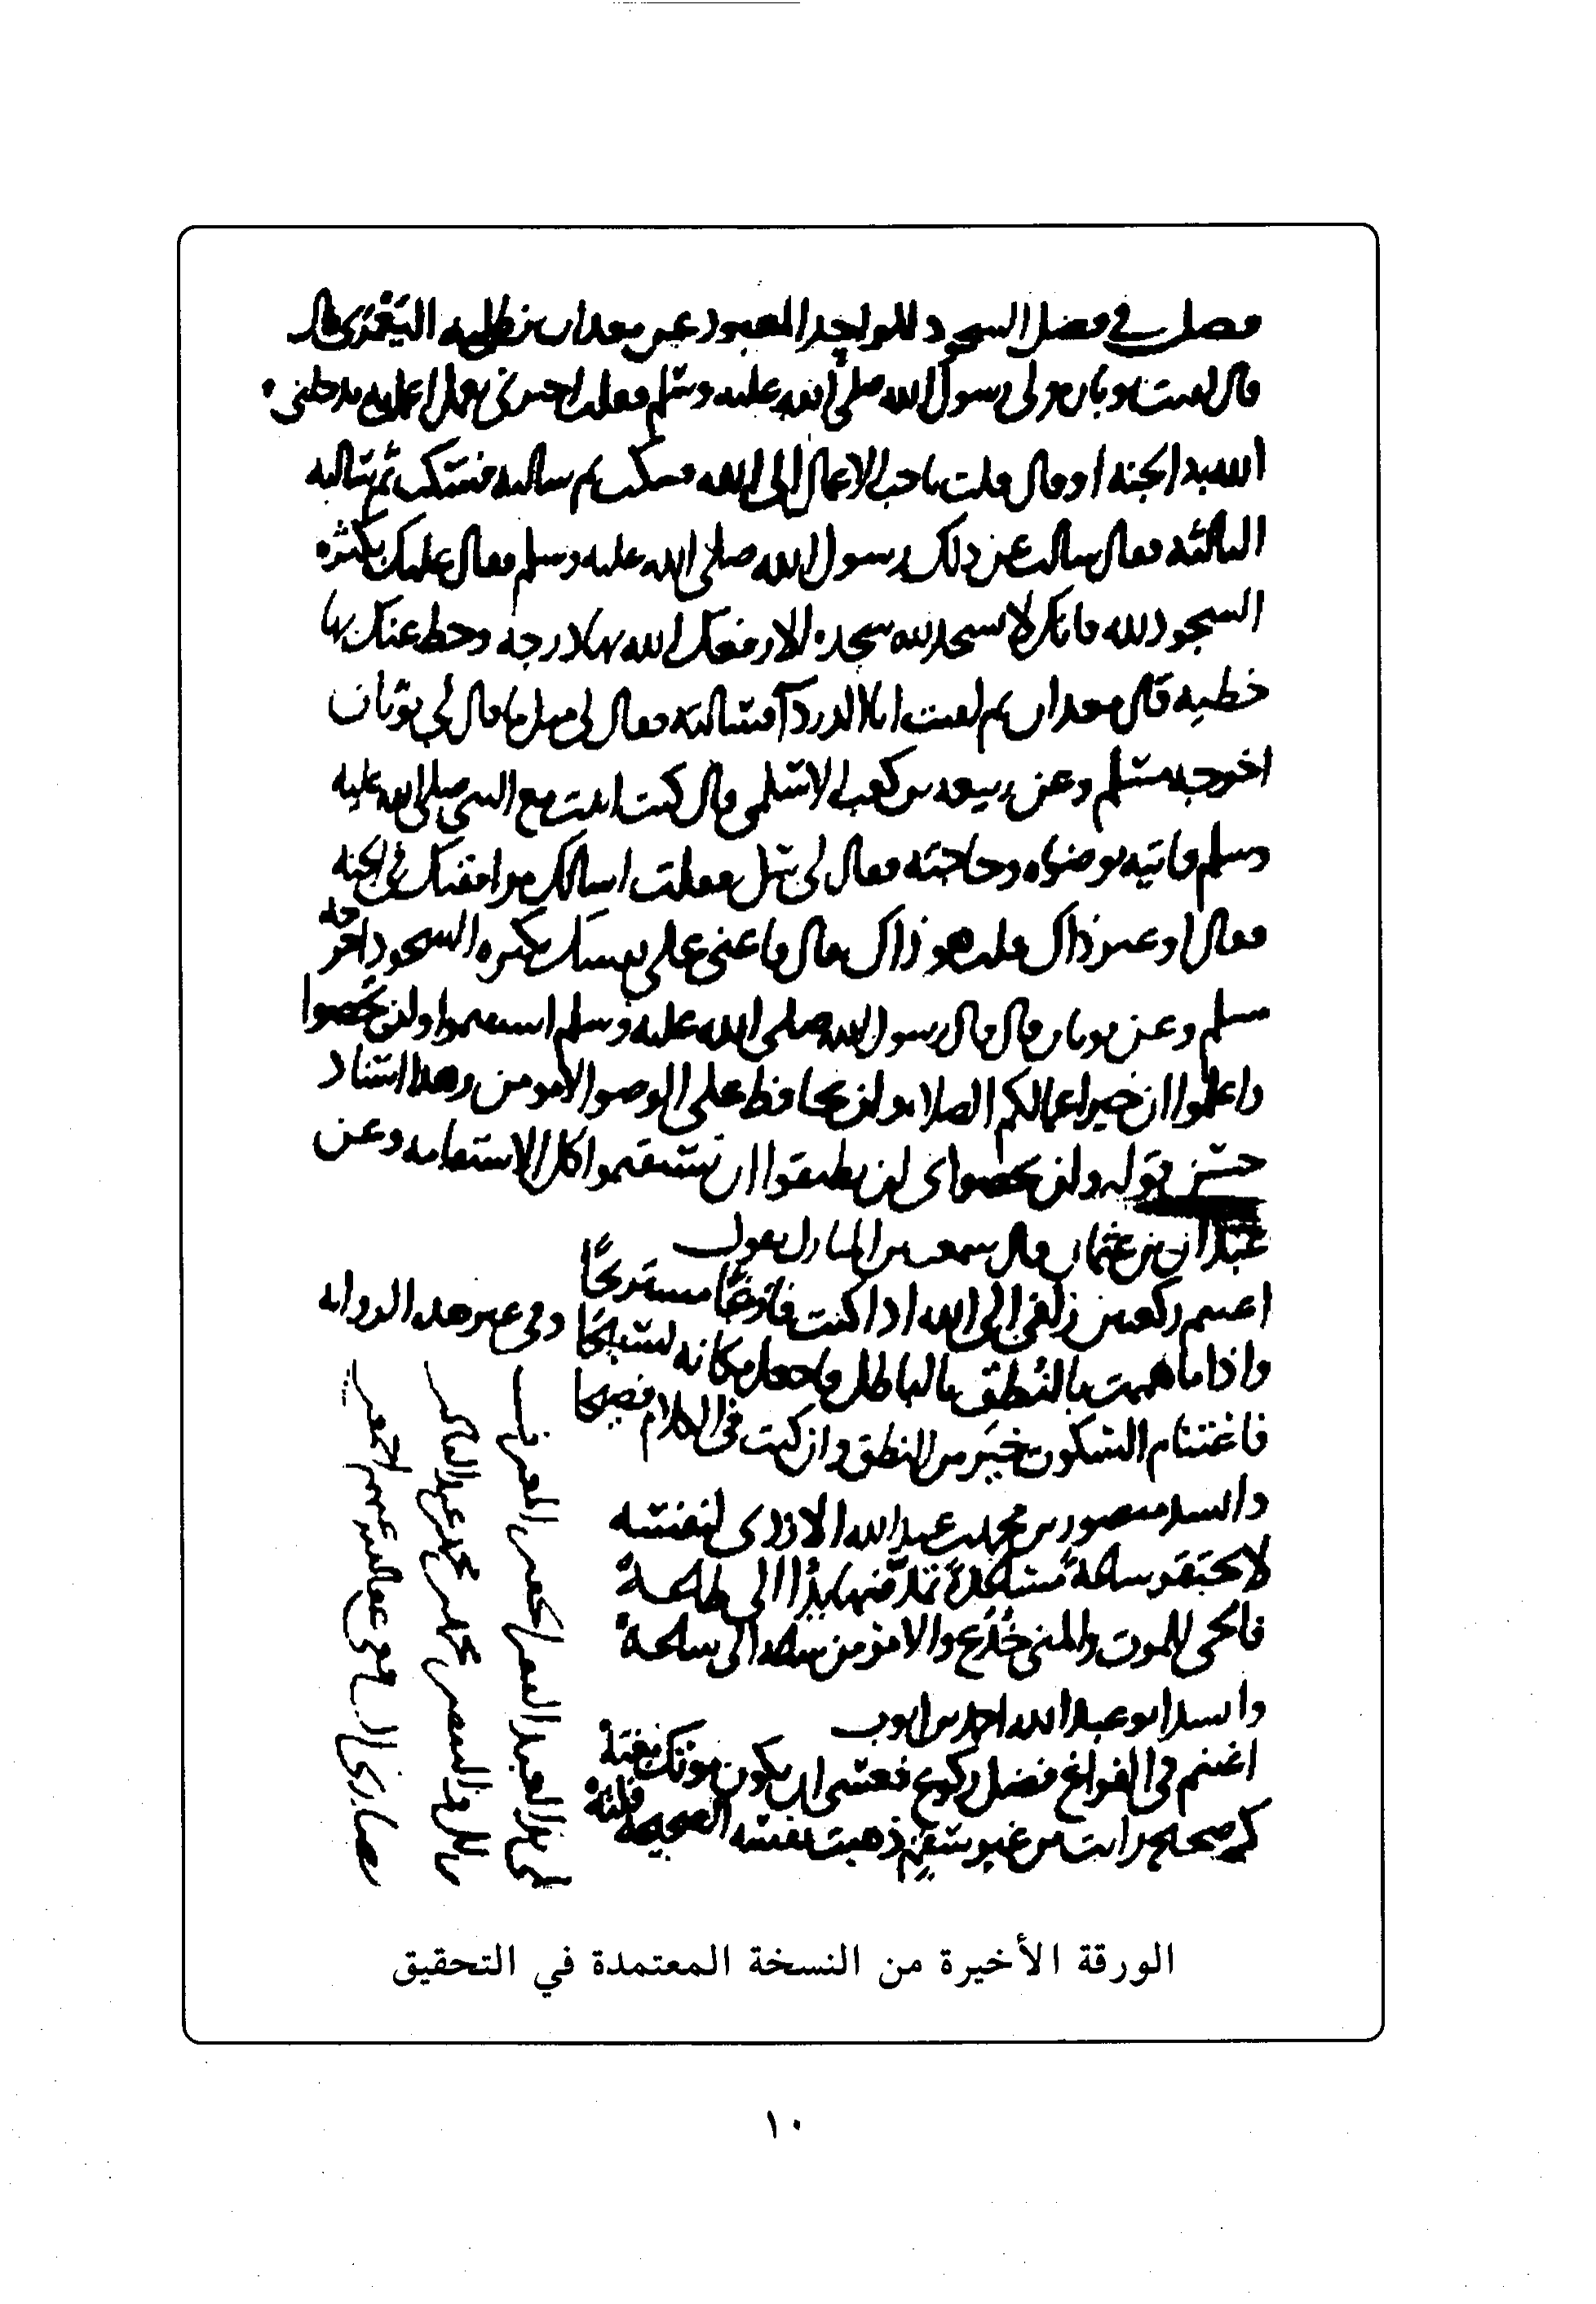 فصل في فضل السجود للواحد المعبود عن معدان بن طلحة اليعمري قال
قال لقيت ثوبان مولى رسول الله صلى الله عليه وسلم فقلت اخبرني بعمل اعمله يدخلني
الله به الجنة او قال قلت باحب الاعمال الى الله فسكت ثم سالته فسكت ثم سالته
الثالثة فقال سالت عن ذلك رسول الله صلى الله عليه وسلم فقال عليك بكثرة
السجود لله فانك لا تسجد لله سجدة الا رفعك الله بها درجة وحط عنك بها
خطية قال معدان ثم لقيت ابا الدردآ فسالته فقال لي مثل ما قال لي ثوبان
اخرجه مسلم وعن ربيعة بن كعب الاسلمي قال كنت ابيت مع النبي صلى الله عليه
وسلم فاتيه بوضوه وحاجته فقال لي سل فقلت اسالك مرافقتك في الجنة
فقال او غير ذاك قلت هو ذاك قال فاعني على نفسك بكثرة السجود اخرجه
مسلم وعن ثوبان قال قال رسول الله صلى الله عليه وسلم استقيموا ولن تحصوا
واعلموا ان خير اعمالكم الصلاة ولن يحافظ على الوضو الا مومن وهذا اسناد
حسن قوله ولن تحصوا اي لن تطيقوا ان تستقيموا كل الاستقامة وعن
عبدان بن عثمان قال سمعت بن المبارك يقول
اغتنم ركعتين زلفى الى الله اذا كنت فارغا مستريحًا
وفي غير هذه الرواية
واذا ما هممت بالنطق بالباطل فاجعل مكانه تسبيحًا
فاغتنام السكوت خير من النطق وان كنت في الكلام فصيحا
وانشد منصور بن محمد بن عبد الله الازدي لنفسه
لا تحتقر ساعة مساعدة تمد فيها يدا الى طاعة
فالحي للموت والمنى خدع والامر من ساعة الى ساعة
وانشد ابو عبد الله احمد بن ايوب
اغتنم في الفراغ فضل ركوع فعسى ان يكون موتك بغتة
كم صحيح رايت من غير سقم ذهبت نفسه الصحيحة فلتة
الورقة الأخيرة من النسخة المعتمدة في التحقيق
١٠